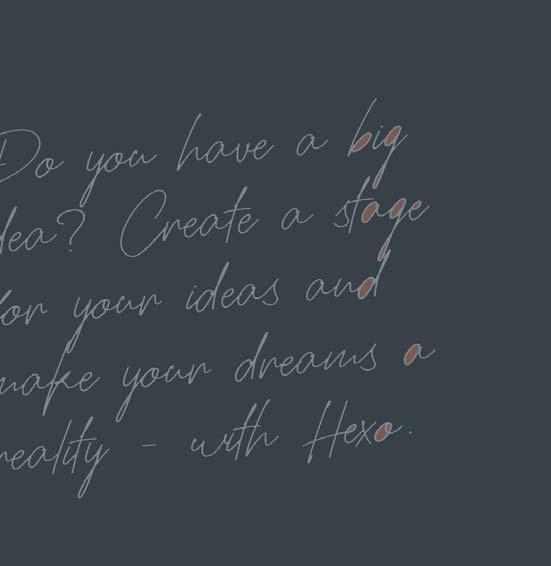 Do you have a big
dea? Create a stage
or your ideas and
make your dreams a
reality - with Hexo.